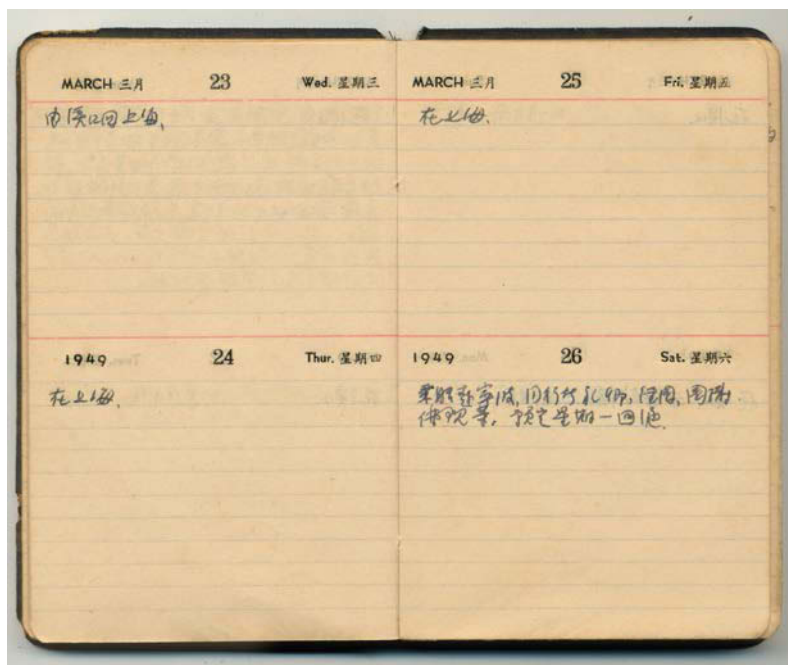 MARCH 三月 23 Wed. 星期三
由溪口回上海.
1949 24 Thur. 星期四
在上海.
MARCH 三月 25 Fri. 星期五
在上海.
1949 26 Sat. 星期六
乘船赴寧波,同行竹礼卿,国
佛现等,预定星期一回沪.